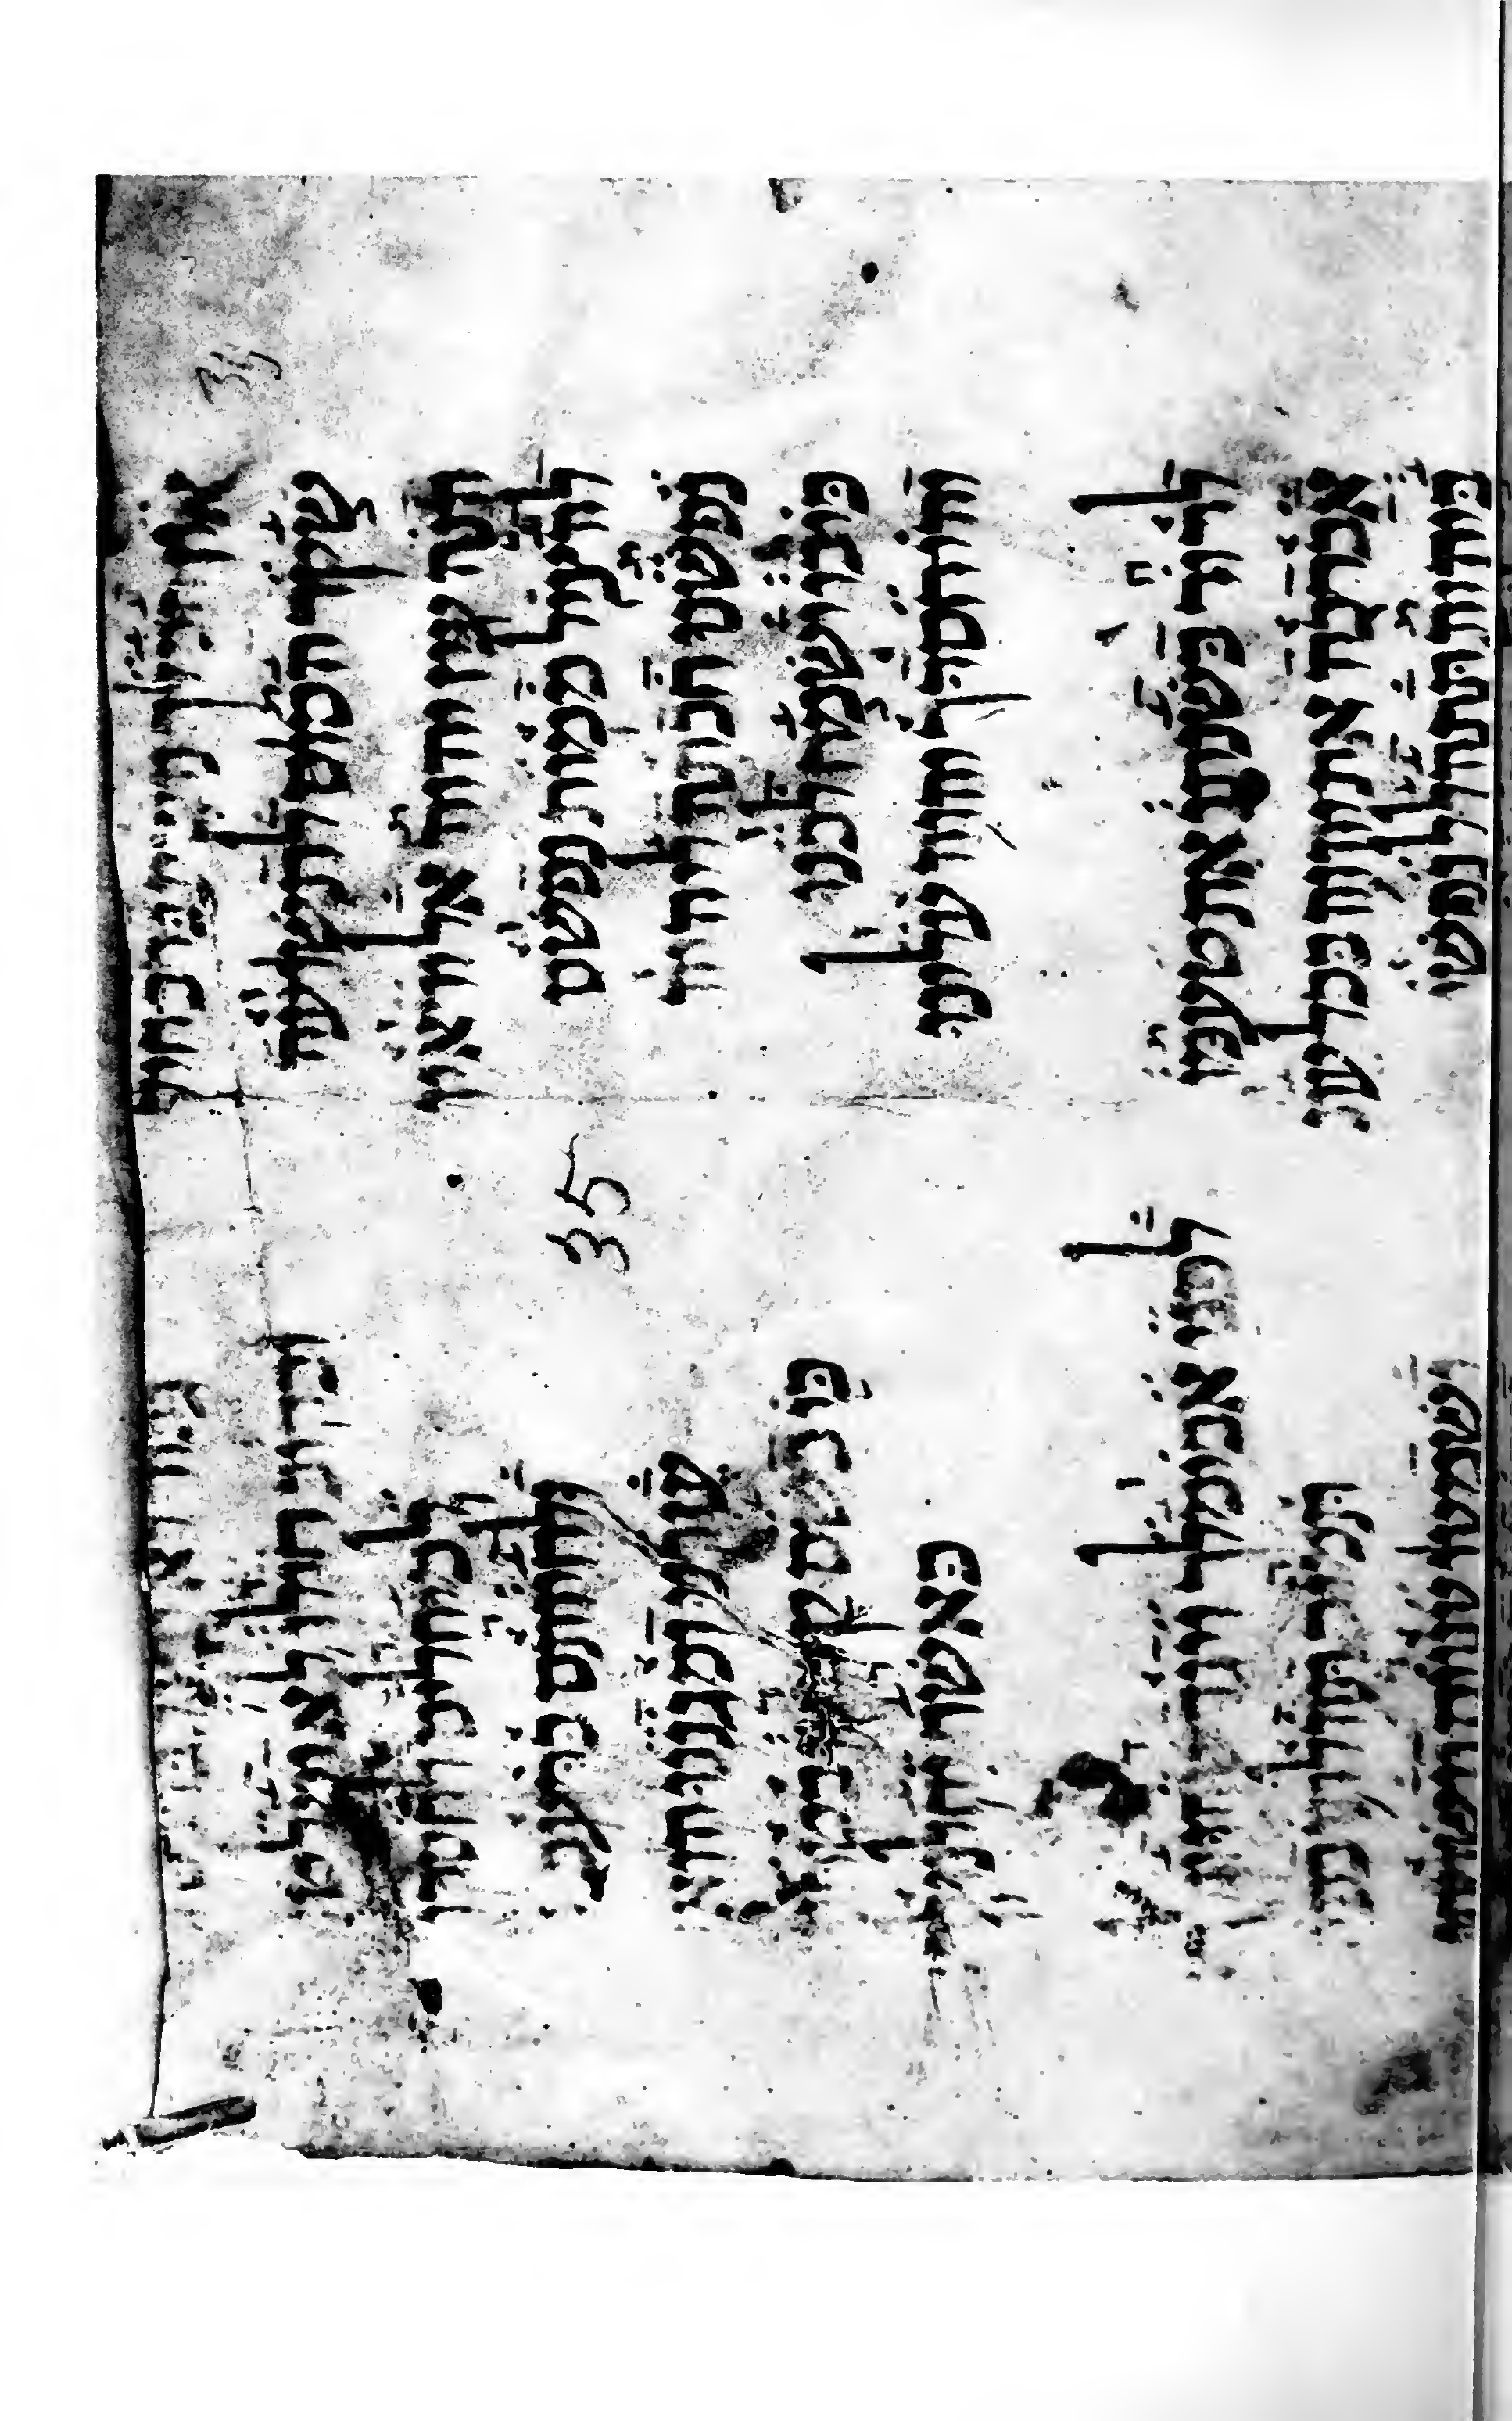 אין המלך נושע ברב חיל
שקר הסוס לתשועה וברב חילו לא ימלט
הנה עין יהוה אל יראיו למיחלים לחסדו
להציל ממות נפשם ולחיותם ברעב
35
נפשנו חכתה ליהוה עזרנו ומגננו הוא
כי בו ישמח לבנו כי בשם
יהי חסדך יהוה עלינו כאשר יחלנו
לדוד בשנותו את טעמו לפני אבימלך ויגרשהו
אברכה את יהוה בכל עת תמיד תהלתו
ביהוה תתהלל נפשי ישמעו ענוים וישמחו